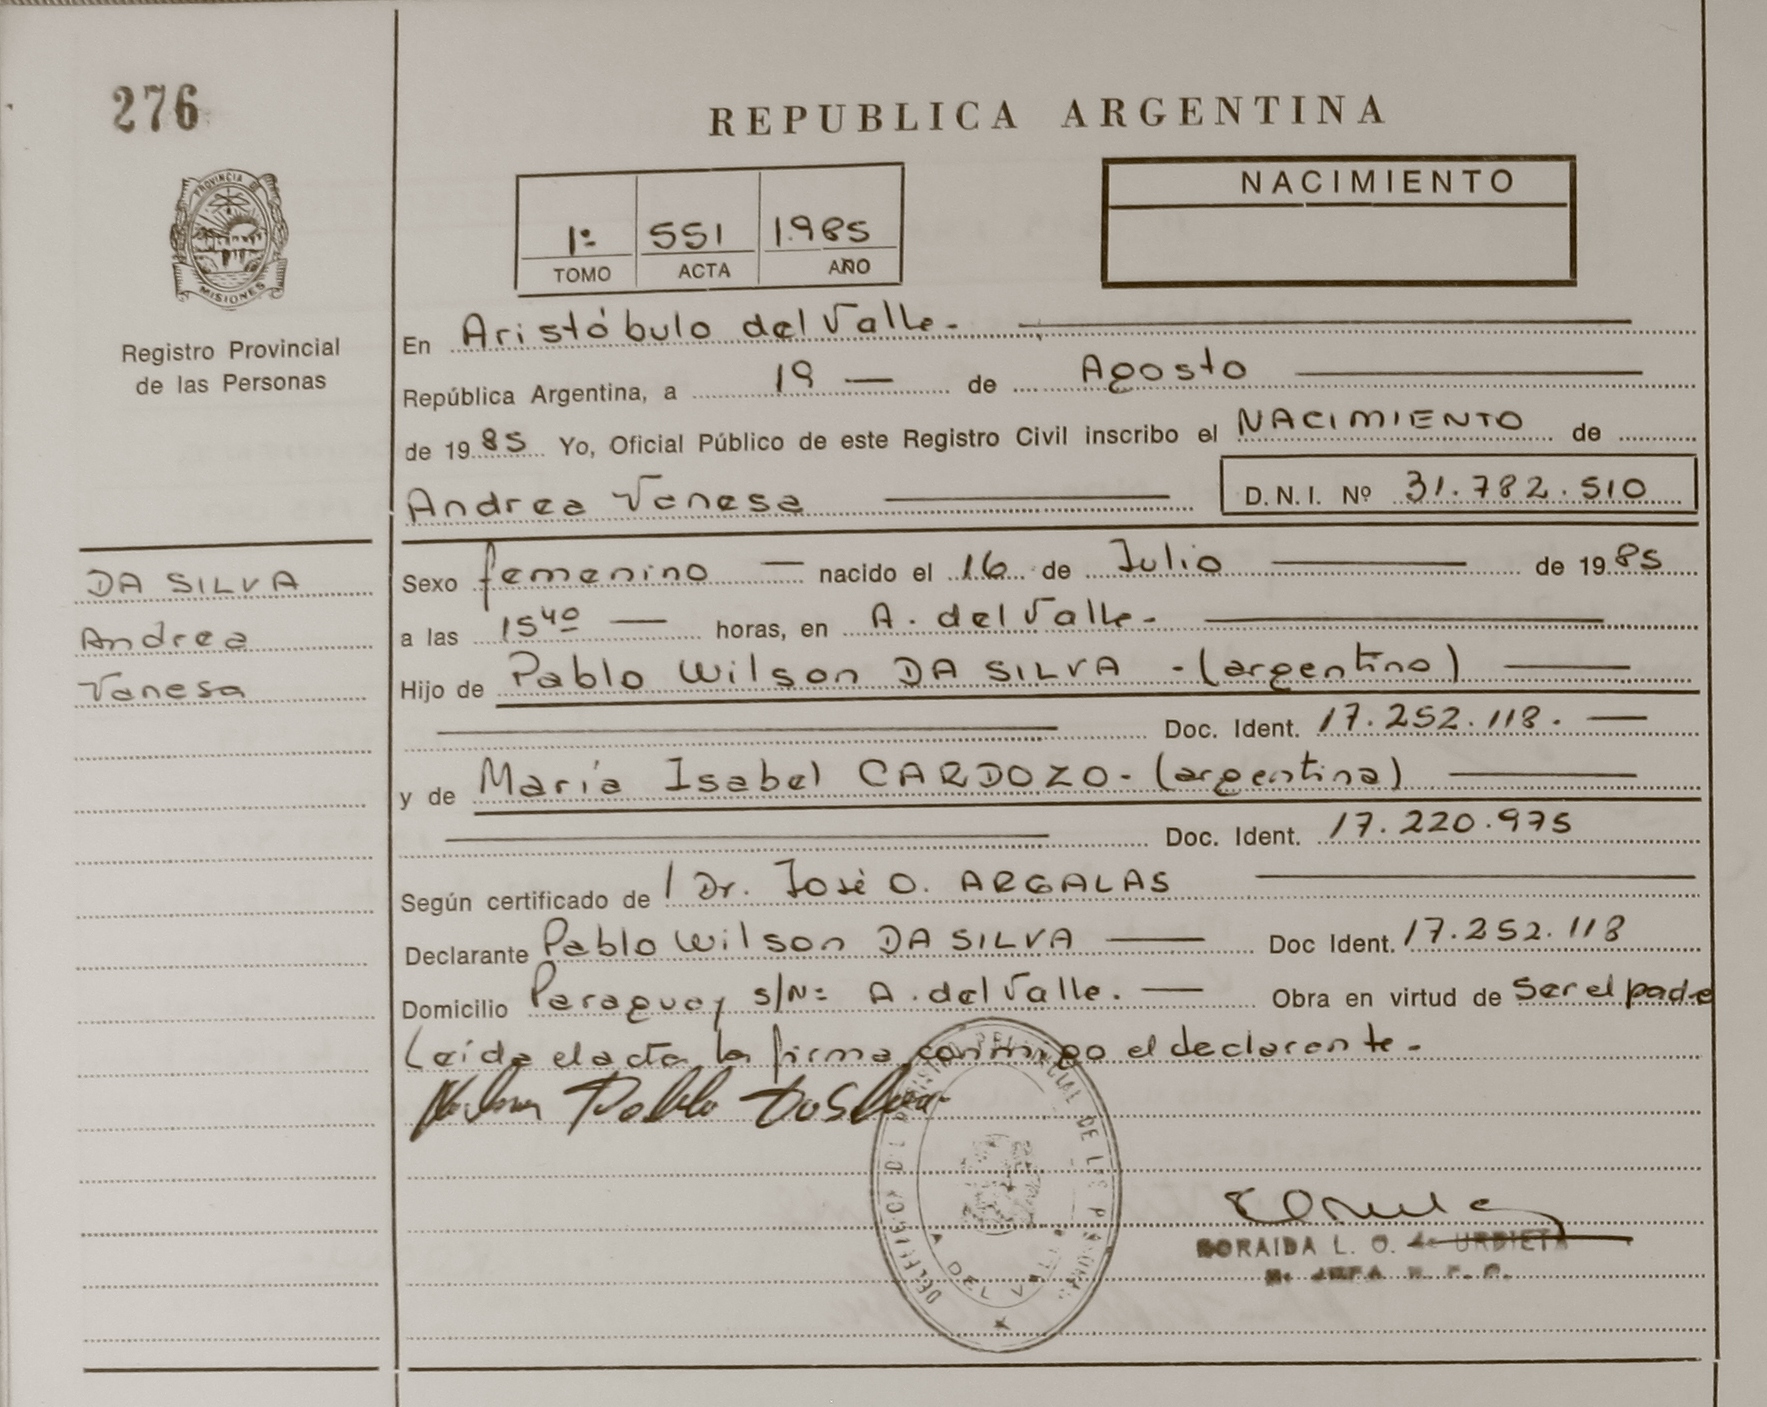 276
REPUBLICA ARGENTINA
PROVINCIA DE
MISIONES
Registro Provincial
de las Personas
1º 551 1.985
TOMO ACTA AÑO
NACIMIENTO
En Aristóbulo del Valle.-
República Argentina, a 19 — de Agosto
de 19 85 Yo, Oficial Público de este Registro Civil inscribo el NACIMIENTO de
Andrea Vanesa D.N.I. Nº 31.782.510
DA SILVA
Andrea
Vanesa
Sexo femenino — nacido el 16 de Julio de 19 85
a las 15 40 — horas, en A. del Valle.-
Hijo de Pablo Wilson DA SILVA -(argentino)
Doc. Ident. 17.252.118. —
y de María Isabel CARDOZO- (argentina)
Doc. Ident. 17.220.975
Según certificado de Dr. José O. ARGALAS
Declarante Pablo Wilson DA SILVA — Doc Ident. 17.252.118
Domicilio Paraguay s/Nº A. del Valle. — Obra en virtud de Ser el padre
Leída el acta la firma conmigo el declarante.-
Pablo
A. DEL VALLE
SORAIDA L. O. de URBIETA